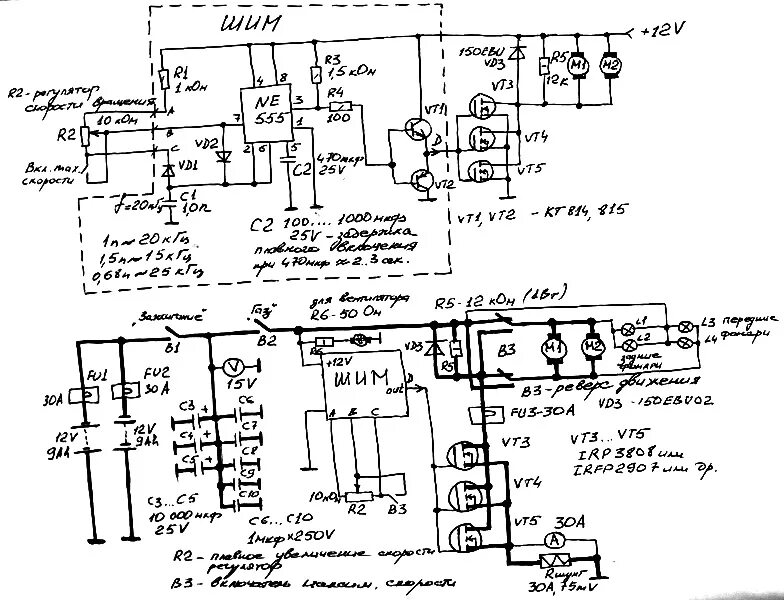 ШИМ
+12V
R1
1 кОм
R3
1,5 кОм
R4
100
150EBU
VD3
R5
12к
M1
M2
VT3
VT4
VT5
R2 - регулятор
скорости вращения
10 кОм
R2
A
B
C
Вкл. max.
скорости
NE
555
4
8
3
7
1
2
6
5
VD1
VD2
C2
470мкф
25V
VT1
VT2
D
C1
1,0п
f=20кГц
1п ≈ 20 кГц
1,5п ≈ 15 кГц
0,68п ≈ 25 кГц
C2 100....1000мкф
25V - задержка
плавного включения
при 470мкф ≈ 2..3 сек.
VT1, VT2 - КТ 814, 815
„Зажигание"
B1
„Газ"
B2
для вентилятора
R6-50 Ом
R5-12 кОм (1Вт)
R6
FU1
30A
FU2
30A
12V
9Ah
12V
9Ah
V
15V
C3
C4
C5
C6
C7
C8
C9
C10
C3...C5
10 000мкф
25V
C6...C10
1мкф x 250V
+12V
ШИМ
out
D
A
B
C
10кОм
R2
B3
VD3
R5
B3
M1
M2
L1
L2
задние
L3 передние
L4 фонари
B3 - реверс движения
VD3 - 150EBU02
FU3-30A
VT3
VT4
VT5
VT3...VT5
IRP3808 или
IRFP2907 или др.
30A
A
Rшунт
30A, 75mV
R2 - плавное увеличение скорости
регулятор
B3 - включатель максим. скорости